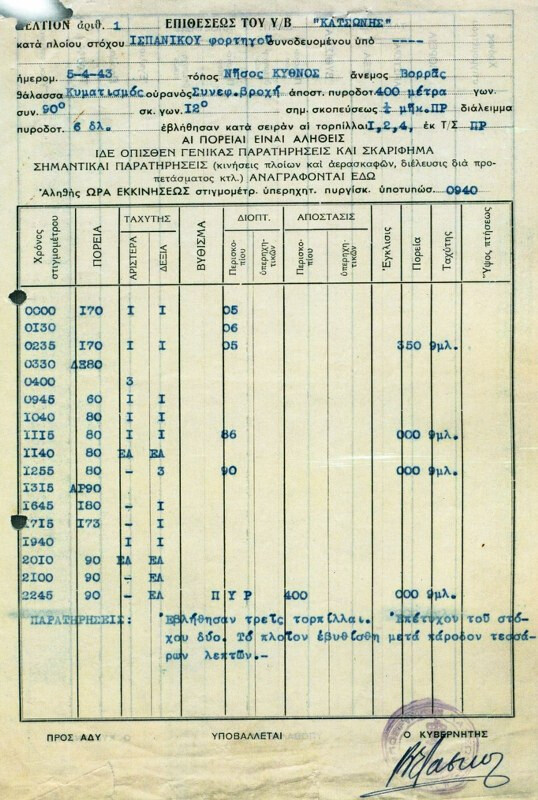 ΔΕΛΤΙΟΝ ἀριθ. 1 ΕΠΙΘΕΣΕΩΣ ΤΟΥ Υ/Β "ΚΑΤΣΩΝΗΣ"
κατά πλοίου στόχου ΙΣΠΑΝΙΚΟΥ φορτηγοῦ συνοδευομένου ὑπό ----
ἡμερομ. 5-4-43 τόπος Νῆσος ΚΥΘΝΟΣ ἄνεμος Βορρᾶς
θάλασσα Κυματισμός οὐρανός Συνεφ. βροχή ἀποστ. πυροδοτ. 400 μέτρα γων.
συν. 90° σκ. γων. Ι2° σημ. σκοπεύσεως ½ μῆκ. ΠΡ διάλειμμα
πυροδοτ. 6 δλ. ἐβλήθησαν κατά σειράν αἱ τορπίλλαι Ι,2,4, ἐκ Τ/Σ ΠΡ
ΑΙ ΠΟΡΕΙΑΙ ΕΙΝΑΙ ΑΛΗΘΕΙΣ
ΙΔΕ ΟΠΙΣΘΕΝ ΓΕΝΙΚΑΣ ΠΑΡΑΤΗΡΗΣΕΙΣ ΚΑΙ ΣΚΑΡΙΦΗΜΑ
ΣΗΜΑΝΤΙΚΑΙ ΠΑΡΑΤΗΡΗΣΕΙΣ (κινήσεις πλοίων καί ἀεροσκαφῶν, διέλευσις διά προ-
πετάσματος κτλ.) ΑΝΑΓΡΑΦΟΝΤΑΙ ΕΔΩ
Ἀληθὴς ΩΡΑ ΕΚΚΙΝΗΣΕΩΣ στιγμομέτρ. ὑπερηχητ. πυργίσκ. ὑποτυπώσ. 0940
Χρόνος στιγμομέτρου ΠΟΡΕΙΑ ΤΑΧΥΤΗΣ ΑΡΙΣΤΕΡΑ ΔΕΞΙΑ ΒΥΘΙΣΜΑ ΔΙΟΠΤ. Περισκοπίου ὑπερηχητικῶν ΑΠΟΣΤΑΣΙΣ Περισκοπίου ὑπερηχητικῶν Ἔγκλισις Πορεία Ταχύτης Ὕψος πτήσεως
0000 Ι70 Ι Ι 05
0Ι30 06
0235 Ι70 Ι Ι 05 350 9μλ.
0330 ΔΕ80
0400 3
0945 60 Ι Ι
Ι040 80 Ι Ι
ΙΙΙ5 80 Ι Ι 86 000 9μλ.
ΙΙ40 80 ΕΛ ΕΛ
Ι255 80 - 3 90 000 9μλ.
Ι3Ι5 ΑΡ90
Ι645 Ι80 - Ι
Ι7Ι5 Ι73 - Ι
Ι940 Ι Ι
20Ι0 90 ΕΛ ΕΛ
2Ι00 90 - ΕΛ
2245 90 - ΕΛ Π Υ Ρ 400 000 9μλ.
ΠΑΡΑΤΗΡΗΣΕΙΣ: Ἐβλήθησαν τρεῖς τορπίλλαι. Ἐπέτυχον τοῦ στό-
χου δύο. Τό πλοῖον ἐβυθίσθη μετά πάροδον τεσσά-
ρων λεπτῶν.-
ΠΡΟΣ ΑΔΥ ΥΠΟΒΑΛΛΕΤΑΙ Ο ΚΥΒΕΡΝΗΤΗΣ